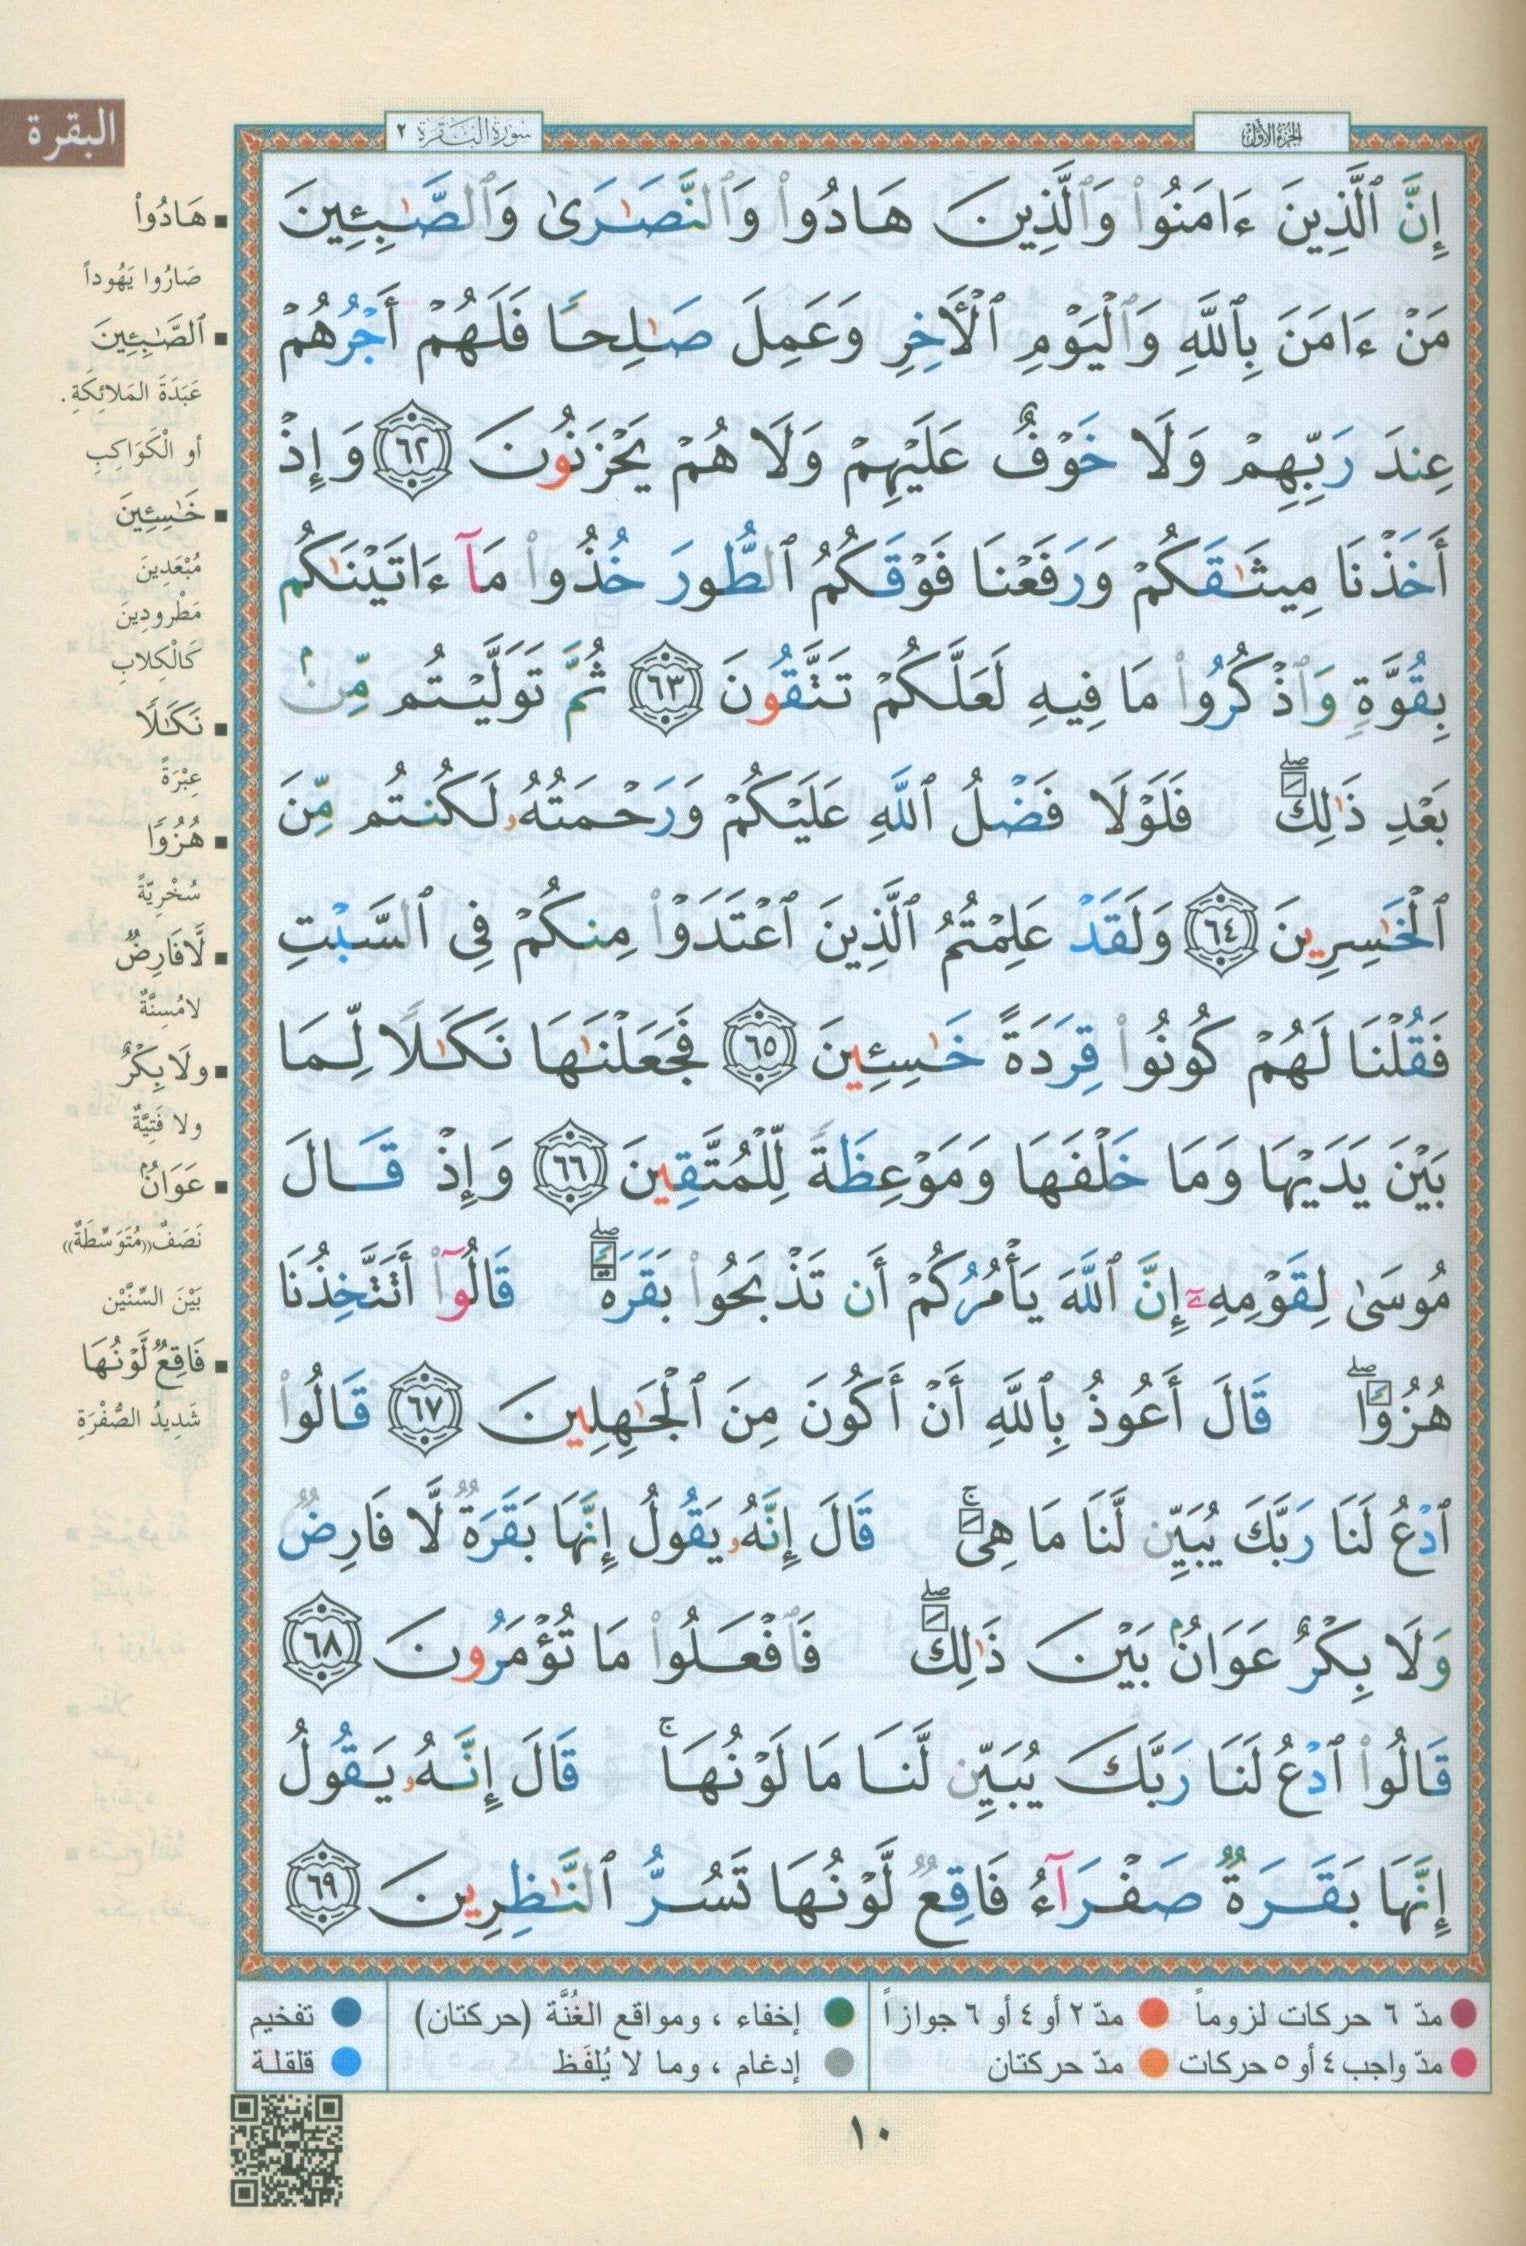 البقرة
سورة البقرة ٢
الجزء الأول
إِنَّ ٱلَّذِينَ ءَامَنُوا۟ وَٱلَّذِينَ هَادُوا۟ وَٱلنَّصَٰرَىٰ وَٱلصَّٰبِـِٔينَ
مَنْ ءَامَنَ بِٱللَّهِ وَٱلْيَوْمِ ٱلْأَخِرِ وَعَمِلَ صَٰلِحًا فَلَهُمْ أَجْرُهُمْ
عِندَ رَبِّهِمْ وَلَا خَوْفٌ عَلَيْهِمْ وَلَا هُمْ يَحْزَنُونَ ٦٢ وَإِذْ
أَخَذْنَا مِيثَٰقَكُمْ وَرَفَعْنَا فَوْقَكُمُ ٱلطُّورَ خُذُوا۟ مَآ ءَاتَيْنَٰكُم
بِقُوَّةٍ وَٱذْكُرُوا۟ مَا فِيهِ لَعَلَّكُمْ تَتَّقُونَ ٦٣ ثُمَّ تَوَلَّيْتُم مِّنۢ
بَعْدِ ذَٰلِكَ ۖ فَلَوْلَا فَضْلُ ٱللَّهِ عَلَيْكُمْ وَرَحْمَتُهُۥ لَكُنتُم مِّنَ
ٱلْخَٰسِرِينَ ٦٤ وَلَقَدْ عَلِمْتُمُ ٱلَّذِينَ ٱعْتَدَوْا۟ مِنكُمْ فِى ٱلسَّبْتِ
فَقُلْنَا لَهُمْ كُونُوا۟ قِرَدَةً خَٰسِـِٔينَ ٦٥ فَجَعَلْنَٰهَا نَكَٰلًا لِّمَا
بَيْنَ يَدَيْهَا وَمَا خَلْفَهَا وَمَوْعِظَةً لِّلْمُتَّقِينَ ٦٦ وَإِذْ قَالَ
مُوسَىٰ لِقَوْمِهِۦٓ إِنَّ ٱللَّهَ يَأْمُرُكُمْ أَن تَذْبَحُوا۟ بَقَرَةً ۖ قَالُوٓا۟ أَتَتَّخِذُنَا
هُزُوًا ۖ قَالَ أَعُوذُ بِٱللَّهِ أَنْ أَكُونَ مِنَ ٱلْجَٰهِلِينَ ٦٧ قَالُوا۟
ٱدْعُ لَنَا رَبَّكَ يُبَيِّن لَّنَا مَا هِىَ ۚ قَالَ إِنَّهُۥ يَقُولُ إِنَّهَا بَقَرَةٌ لَّا فَارِضٌ
وَلَا بِكْرٌ عَوَانٌۢ بَيْنَ ذَٰلِكَ ۖ فَٱفْعَلُوا۟ مَا تُؤْمَرُونَ ٦٨
قَالُوا۟ ٱدْعُ لَنَا رَبَّكَ يُبَيِّن لَّنَا مَا لَوْنُهَا ۚ قَالَ إِنَّهُۥ يَقُولُ
إِنَّهَا بَقَرَةٌ صَفْرَآءُ فَاقِعٌ لَّوْنُهَا تَسُرُّ ٱلنَّٰظِرِينَ ٦٩
▪ هَادُوا۟
صَارُوا يَهُوداً
▪ ٱلصَّٰبِـِٔينَ
عَبَدَةَ المَلائِكَةِ.
أو الْكَوَاكِبِ
▪ خَٰسِـِٔينَ
مُبْعَدِينَ
مَطْرودِينَ
كَالْكِلابِ
▪ نَكَٰلًا
عِبْرَةً
▪ هُزُوًا
سُخْرِيّةً
▪ لَّا فَارِضٌ
لا مُسِنَّةٌ
▪ ولَا بِكْرٌ
ولا فَتِيَّةٌ
▪ عَوَانٌ
نَصَفٌ((مُتَوَسِّطَةٌ))
بَيْنَ السِّنَّيْن
▪ فَاقِعٌ لَّوْنُهَا
شَدِيدُ الصُّفْرَةِ
مدّ ٦ حركات لزوماً ● مدّ ٢ أو ٤ أو ٦ جوازاً ● إخفاء ، ومواقع الغُنَّة (حركتان) ● تفخيم
مدّ واجب ٤ أو ٥ حركات ● مدّ حركتان ● إدغام ، وما لا يُلفَظ ● قلقلة
١٠